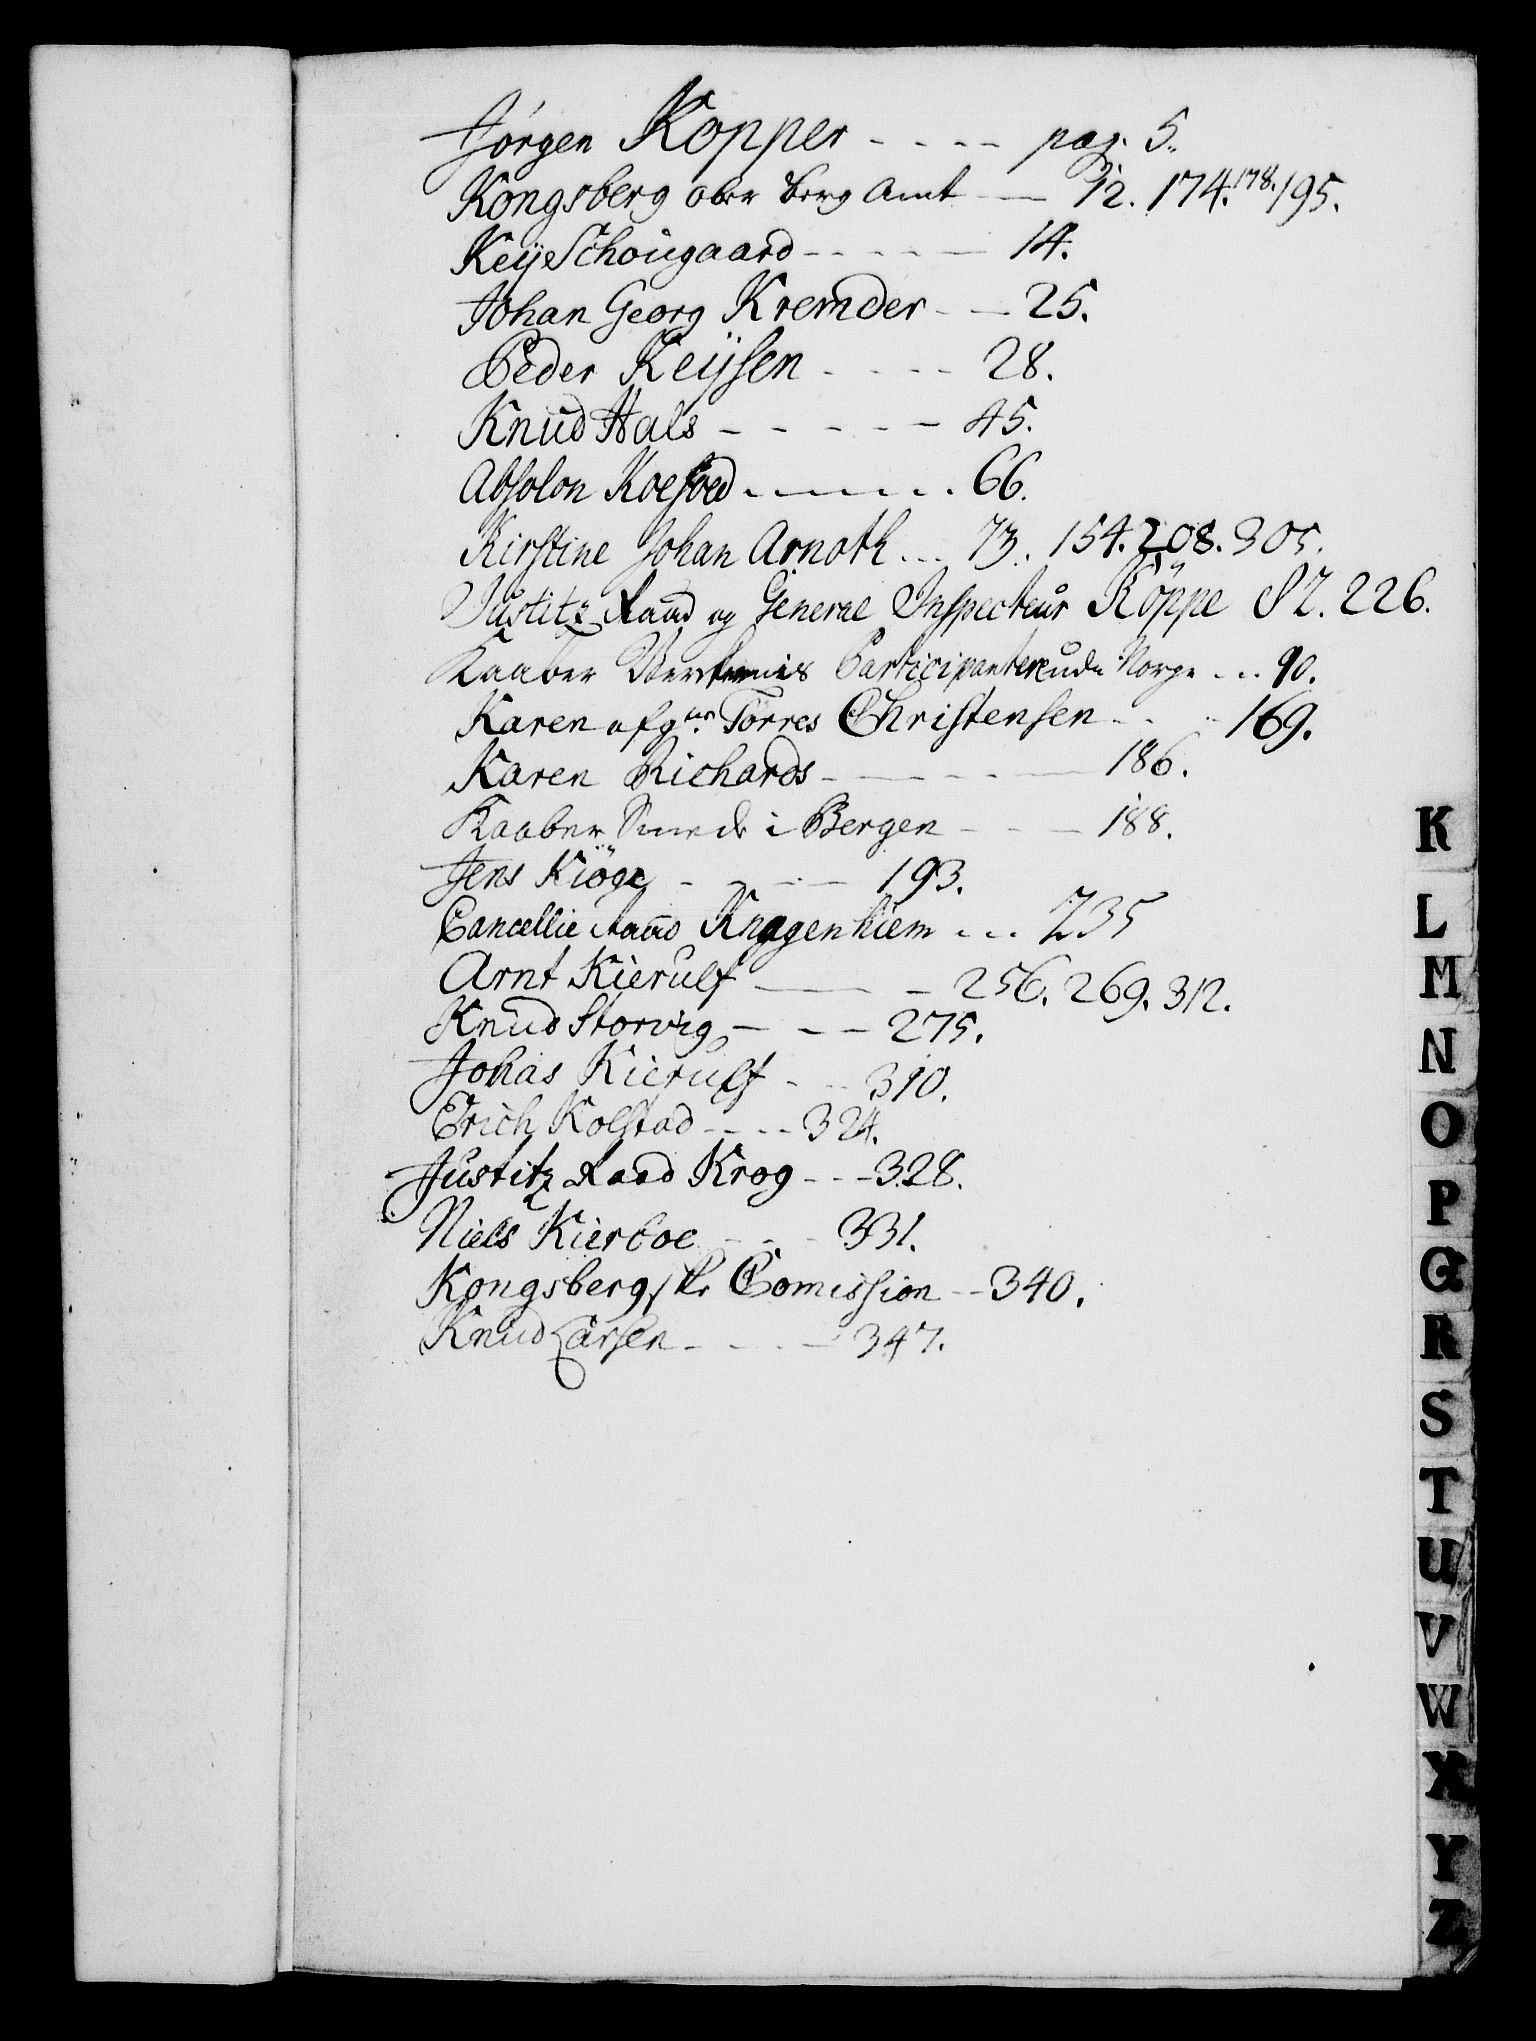 Jørgen Kopper - - - - pag. 5.
Kongsberg ober berg Amt - - 12. 174. 178. 195.
Keÿ Schougaard - - - - - 14.
Johan Georg Kremder - - 25.
Peder Keÿsen - - - - 28.
Knud Hals - - - - - 45.
Absolon Koefoed - - - - - 66.
Kirstine Johan Arnoth ... 73. 154. 208. 305.
Justitz Raad og General Inspecteur Köppe 82. 226.
Kaaber Verkernis Participantere udi Norge ... 90.
Karen afg. Torres Christensen - - - 169.
Karen Richards - - - - - 186.
Kaaber Smede i Bergen - - - 188.
Jens Kiöge - - - - 193.
Cancellie Raad Knagenhiem ... 235
Arnt Kierulf - - 256. 269. 312.
Knud Storvig - - - 275.
Johas Kierulf - - 310.
Erich Kolstad - - - - 324.
Justitz Raad Krog - - - 328.
Niels Kierboe - - - 331.
Kongsbergske Comission - - 340.
Knud Larsen - - - - 347.
K
L
M
N
O
P
Q
R
S
T
U
V
W
X
Y
Z